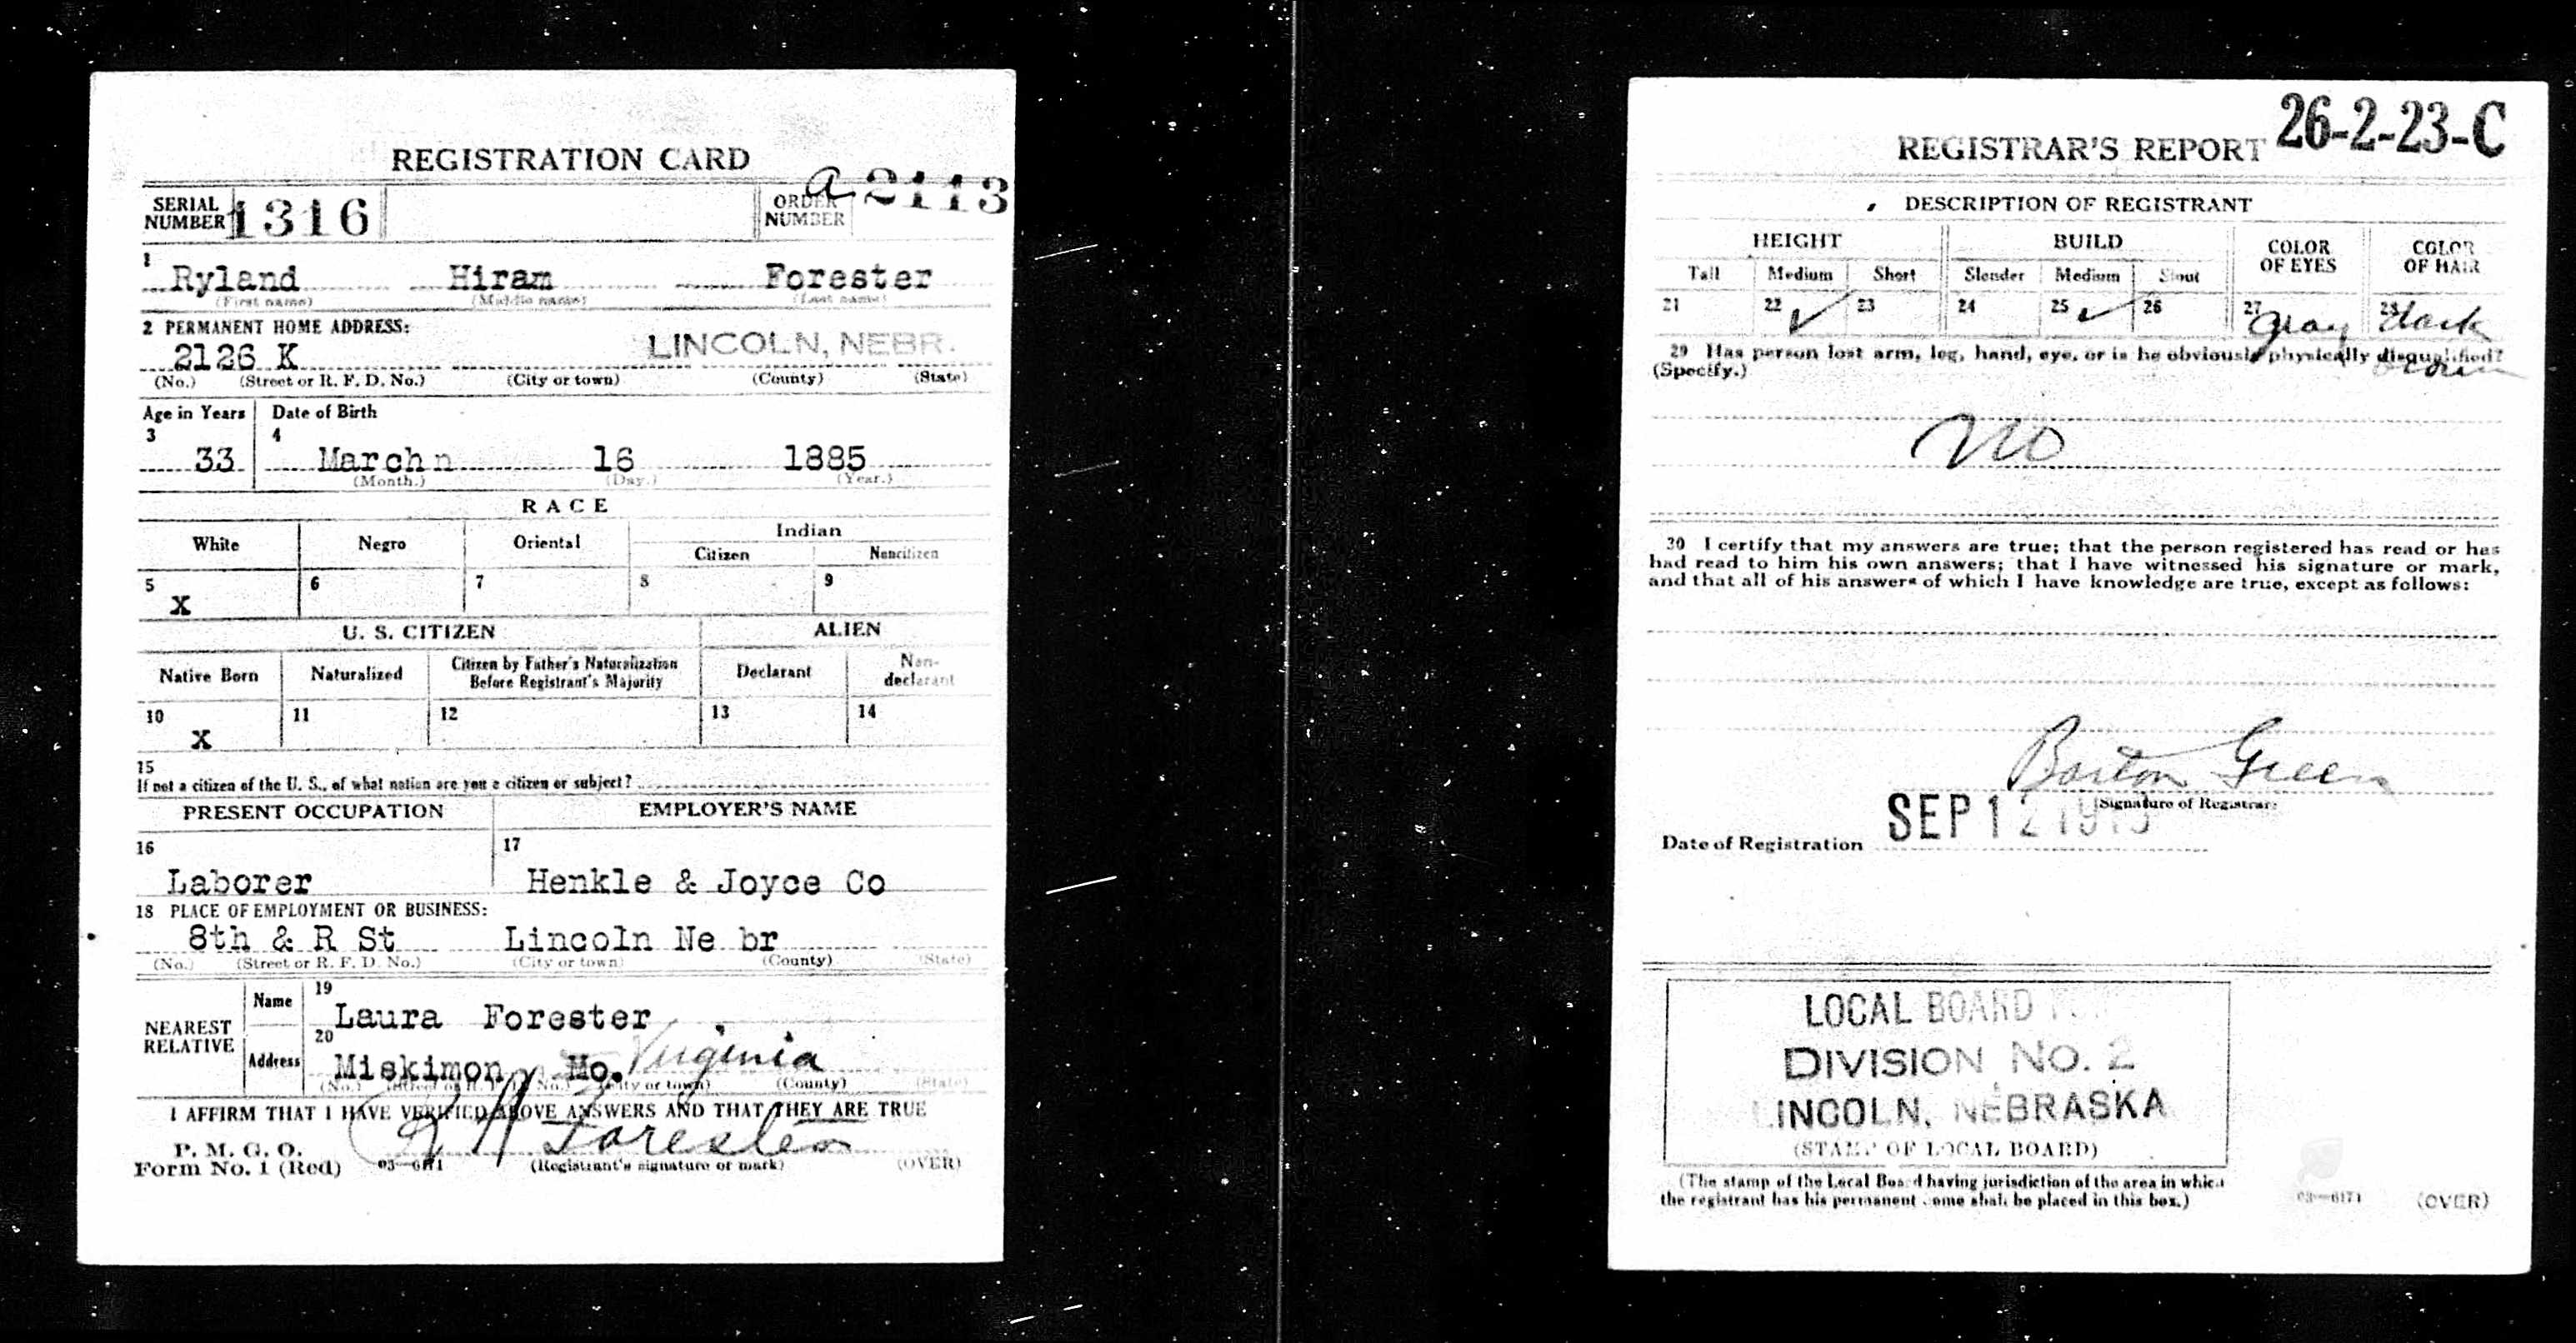 REGISTRATION CARD
SERIAL NUMBER 1316 ORDER NUMBER a 2113
1 Ryland Hiram Forester
(First name) (Middle name) (Last name)
2 PERMANENT HOME ADDRESS:
2126 K LINCOLN, NEBR.
(No.) (Street or R. F. D. No.) (City or town) (County) (State)
Age in Years Date of Birth
3 4
33 March n 16 1885
(Month.) (Day.) (Year.)
RACE
White Negro Oriental Indian
Citizen Noncitizen
5 6 7 8 9
X
U. S. CITIZEN ALIEN
Native Born Naturalized Citizen by Father's Naturalization Before Registrant's Majority Declarant Non-declarant
10 11 12 13 14
X
15
If not a citizen of the U. S., of what nation are you a citizen or subject?
PRESENT OCCUPATION EMPLOYER'S NAME
16 17
Laborer Henkle & Joyce Co
18 PLACE OF EMPLOYMENT OR BUSINESS:
8th & R St Lincoln Ne br
(No.) (Street or R. F. D. No.) (City or town) (County) (State)
NEAREST RELATIVE
Name 19 Laura Forester
Address 20 Miskimon, Mo. Virginia
(No.) (Street or R. F. D. No.) (City or town) (County) (State)
I AFFIRM THAT I HAVE VERIFIED ABOVE ANSWERS AND THAT THEY ARE TRUE
P. M. G. O.
Form No. 1 (Red) 03—6171 R H Forester
(Registrant's signature or mark) (OVER)
REGISTRAR'S REPORT 26-2-23-C
DESCRIPTION OF REGISTRANT
HEIGHT BUILD COLOR OF EYES COLOR OF HAIR
Tall Medium Short Slender Medium Stout
21 22 ✓ 23 24 25 ✓ 26 27 gray 28 dark
brown
29 Has person lost arm, leg, hand, eye, or is he obviously physically disqualified?
(Specify.)
No
30 I certify that my answers are true; that the person registered has read or has
had read to him his own answers; that I have witnessed his signature or mark,
and that all of his answers of which I have knowledge are true, except as follows:
Barton Green
(Signature of Registrar)
Date of Registration SEP 12 1918
LOCAL BOARD FOR
DIVISION NO. 2
LINCOLN, NEBRASKA
(STAMP OF LOCAL BOARD)
(The stamp of the Local Board having jurisdiction of the area in which
the registrant has his permanent home shall be placed in this box.)
03—6171 (OVER)